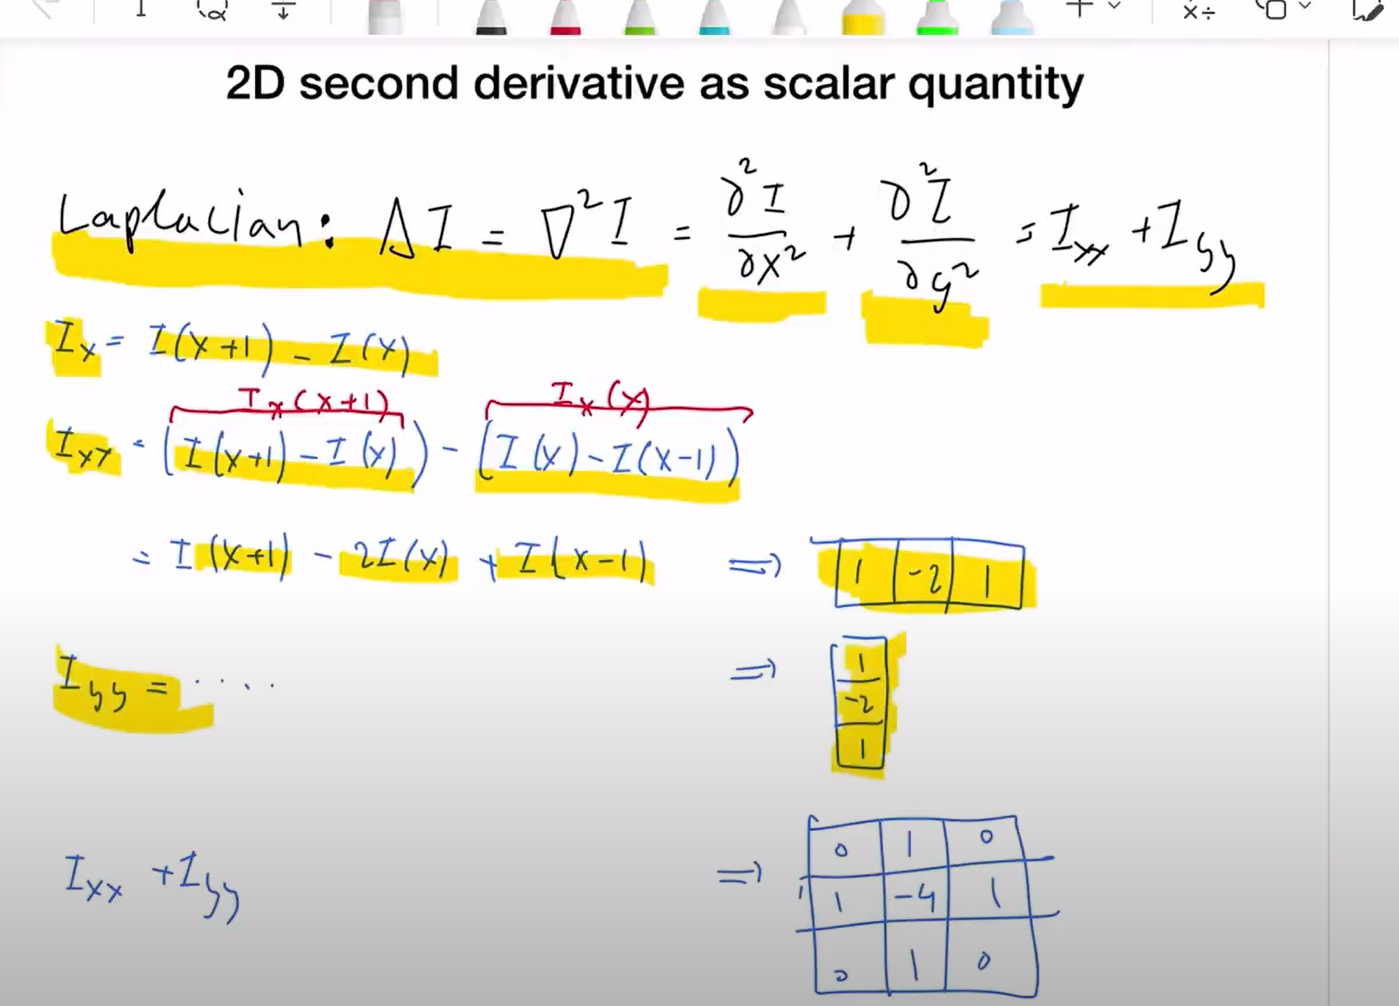 2D second derivative as scalar quantity
Laplacian: ΔI = ∇²I = ∂²I/∂x² + ∂²I/∂y² = Ixx + Iyy
Ix = I(x+1) - I(x)
Ix(x+1) Ix(x)
Ixx = (I(x+1) - I(x)) - (I(x) - I(x-1))
= I(x+1) - 2I(x) + I(x-1) ⇒ 1 -2 1
Iyy = .... ⇒ 1
-2
1
0 1 0
Ixx + Iyy ⇒ 1 -4 1
0 1 0